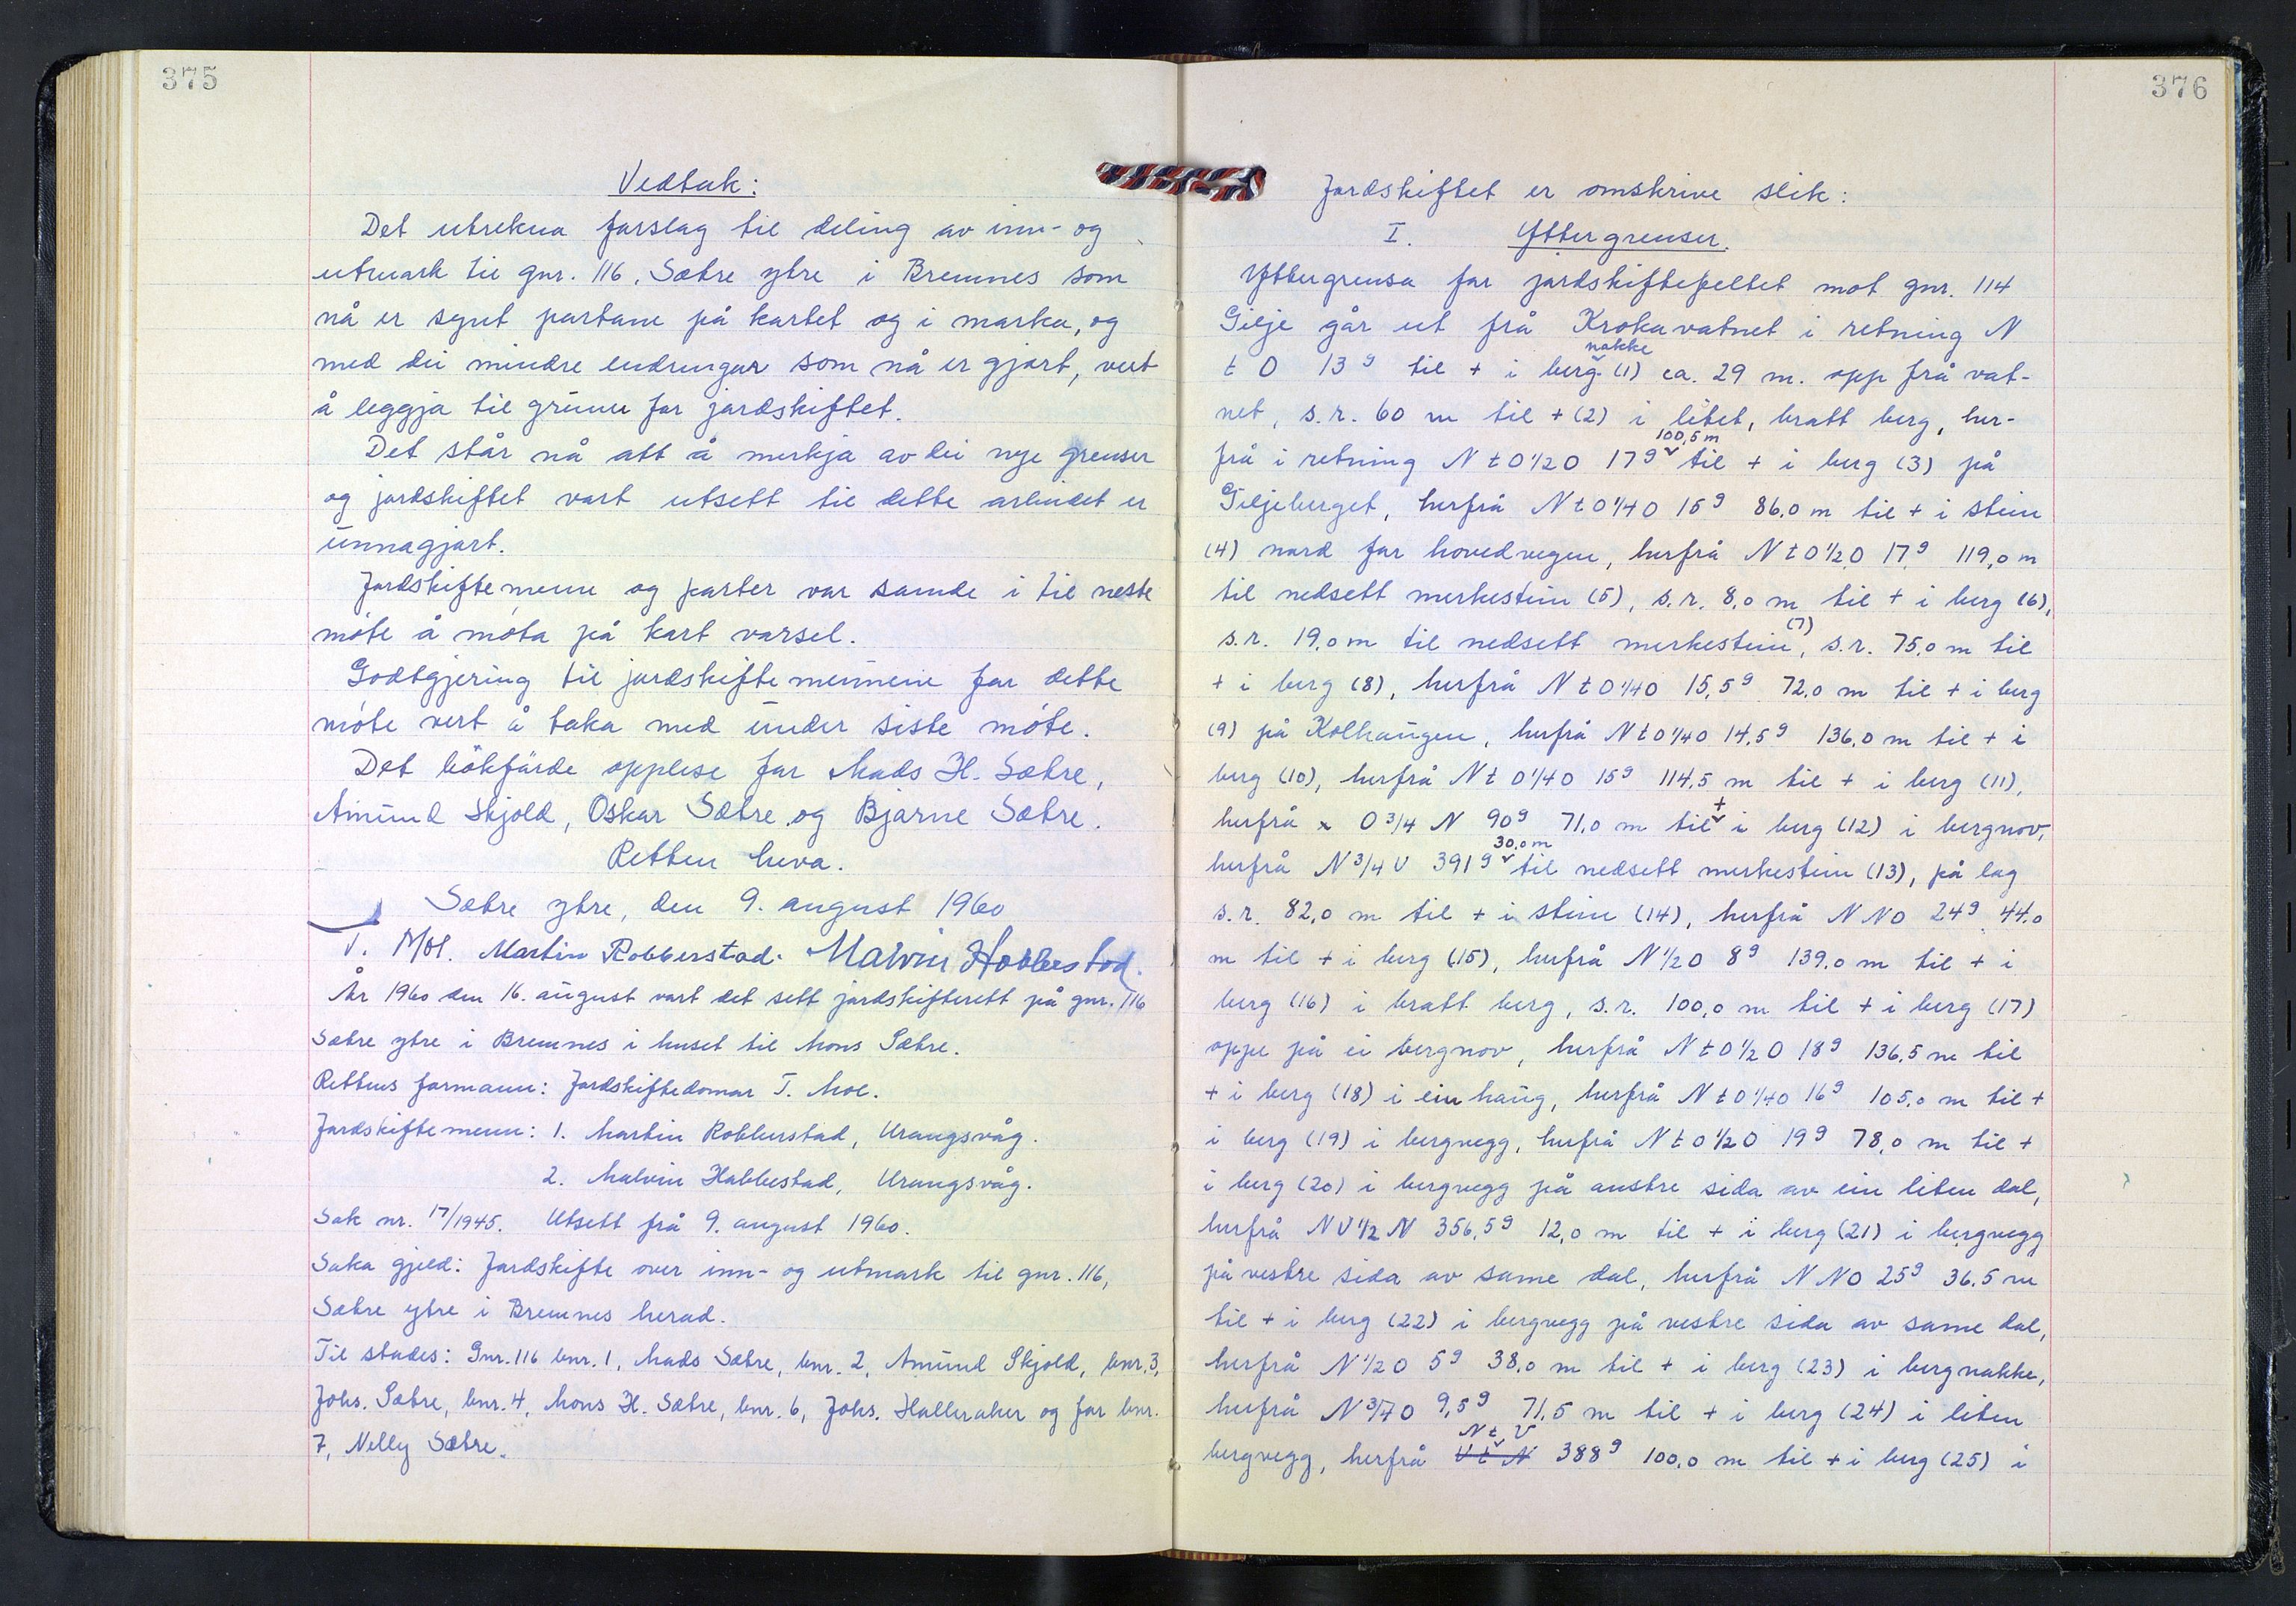 375
Vedtak:
Det utrekna forslag til deling av inn- og
utmark til gnr. 116, Sætre ytre i Bremnes som
nå er synt partane på kartet og i marka, og
med dei mindre endringar som nå er gjort, vert
å leggja til grunn for jordskiftet.
Det står nå att å merkja av dei nye grenser
og jordskiftet vart utsett til dette arbeidet er
unnagjort.
Jordskiftemenn og parter var samde i til neste
møte å møta på kort varsel.
Godtgjering til jordskiftemennene for dette
møte vert å taka med under siste møte.
Det bokførde opplese for Mads H. Sætre,
Amund Skjold, Oskar Sætre og Bjarne Sætre.
Retten heva.
Sætre ytre, den 9. august 1960
T. Moe. Martin Robberstad. Malvin Habbestad.
År 1960 den 16. august vart det sett jordskifterett på gnr. 116
Sætre ytre i Bremnes i huset til Mons Sætre.
Rettens formann: Jordskiftedomar T. Moe.
Jordskiftemenn: 1. Martin Robberstad, Urangsvåg.
2. Malvin Habbestad, Urangsvåg.
Sak nr. 17/1945. Utsett frå 9. august 1960.
Saka gjeld: Jordskifte over inn- og utmark til gnr. 116,
Sætre ytre i Bremnes herad.
Til stades: Gnr. 116 bnr. 1, Mads Sætre, bnr. 2, Amund Skjold, bnr. 3,
Johs. Sætre, bnr. 4, Mons H. Sætre, bnr. 6, Johs. Halleraker og for bnr.
7, Nelly Sætre.
376
Jordskiftet er omskrive slik:
I. Yttergrenser.
Yttergrensa for jordskiftefeltet mot gnr. 114
Gilje går ut frå Krokavatnet i retning N
t O 13 g til + i bergnakke (1) ca. 29 m. opp frå vat-
net, s.r. 60 m til + (2) i litet, bratt berg, her-
frå i retning N t O 1/2 O 17 g 100,5 m til + i berg (3) på
Giljeberget, herfrå N t O 1/4 O 15 g 86,0 m til + i stein
(4) nord for hovedvegen, herfrå N t O 1/2 O 17 g 119,0 m
til nedsett merkestein (5), s.r. 8,0 m til + i berg (6),
s.r. 19,0 m til nedsett merkestein (7), s.r. 75,0 m til
+ i berg (8), herfrå N t O 1/4 O 15,5 g 72,0 m til + i berg
(9) på Kolhaugen, herfrå N t O 1/4 O 14,5 g 136,0 m til + i
berg (10), herfrå N t O 1/4 O 15 g 114,5 m til + i berg (11),
herfrå x O 3/4 N 90 g 71,0 m til + i berg (12) i bergnov,
herfrå N 3/4 V 391 g 30,0 m til nedsett merkestein (13), på lag
s.r. 82,0 m til + i stein (14), herfrå N N O 24 g 44,0
m til + i berg (15), herfrå N 1/2 O 8 g 139,0 m til + i
berg (16) i bratt berg, s.r. 100,0 m til + i berg (17)
oppe på ei bergnov, herfrå N t O 1/2 O 18 g 136,5 m til
+ i berg (18) i ein haug, herfrå N t O 1/4 O 16 g 105,0 m til +
i berg (19) i bergvegg, herfrå N t O 1/2 O 19 g 78,0 m til +
i berg (20) i bergvegg på austre sida av ein liten dal,
herfrå N V 1/2 N 356,5 g 12,0 m til + i berg (21) i bergvegg
på vestre sida av same dal, herfrå N N O 25 g 36,5 m
til + i berg (22) i bergvegg på vestre sida av same dal,
herfrå N 1/2 O 5 g 38,0 m til + i berg (23) i bergnakke,
herfrå N 3/4 O 9,5 g 71,5 m til + i berg (24) i liten
bergvegg, herfrå V t N N t V 388 g 100,0 m til + i berg (25) i